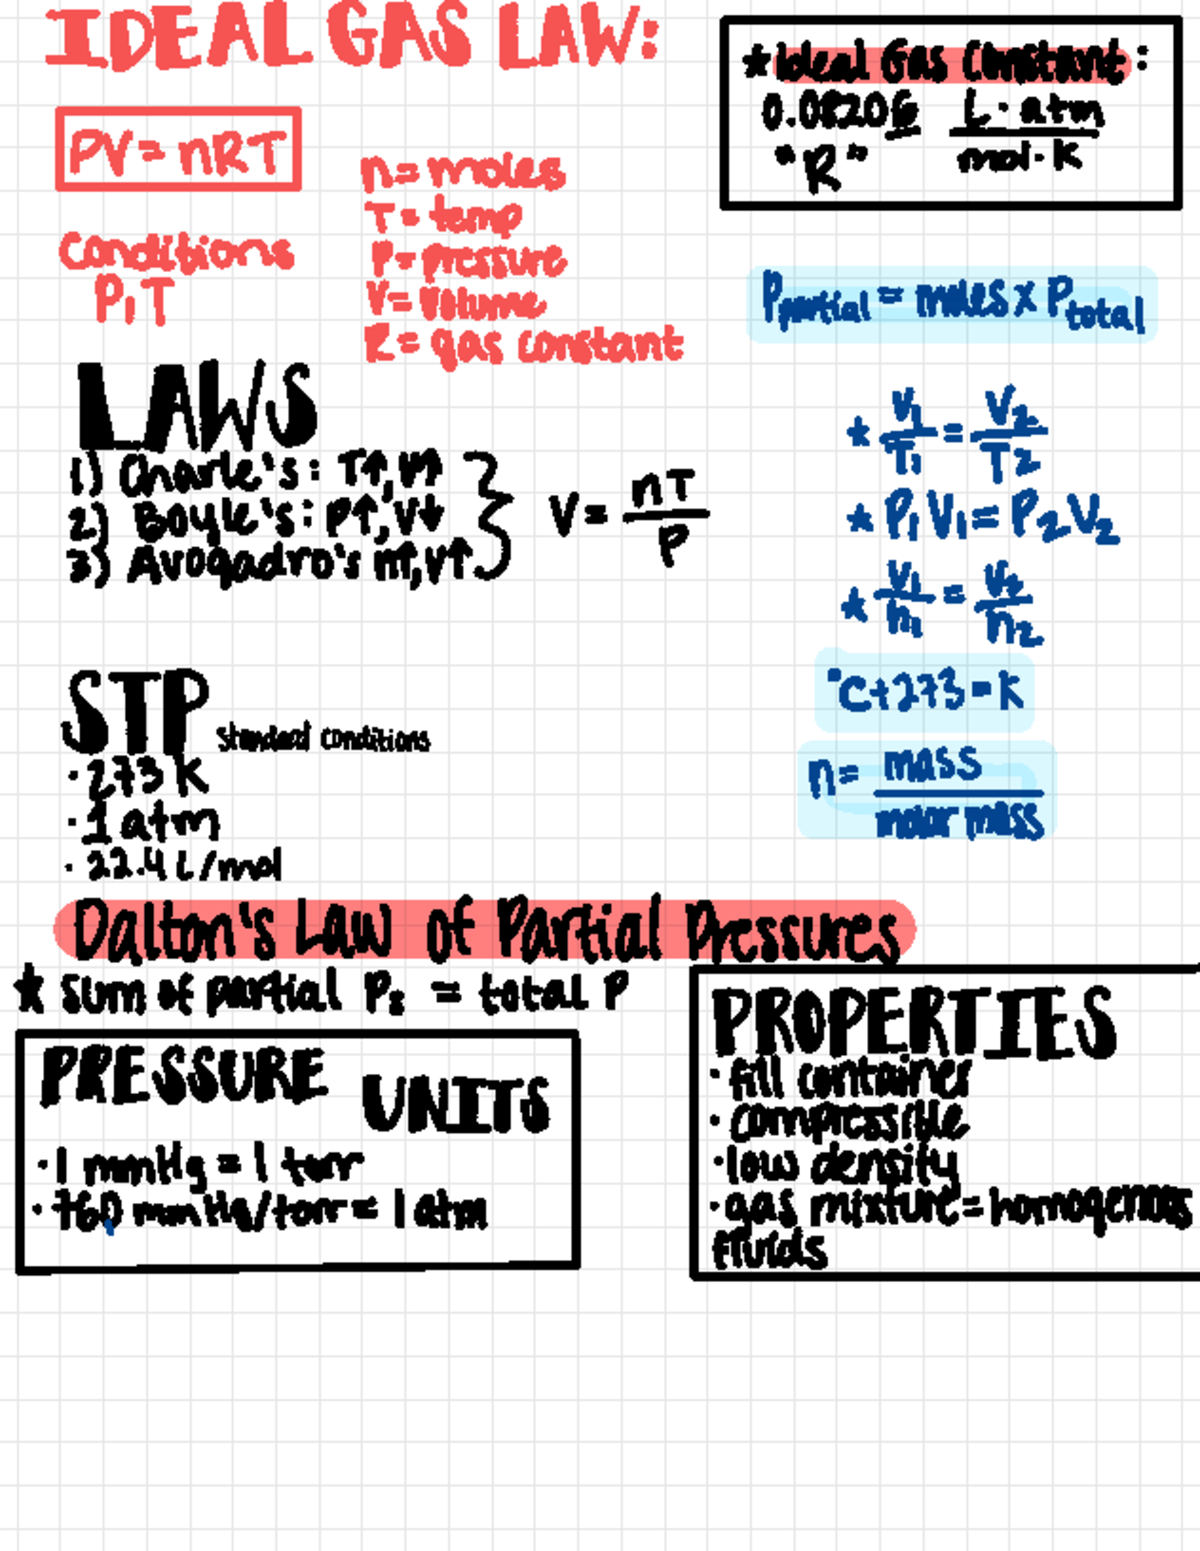 IDEAL GAS LAW:
PV = nRT
Conditions
P, T
n = moles
T = temp
P = pressure
V = volume
R = gas constant
* Ideal Gas Constant:
0.08206 L · atm
"R" mol · K
Ppartial = moles x Ptotal
LAWS
1) Charle's: T↑, V↑
2) Boyle's: P↑, V↓
3) Avogadro's n↑, V↑
V = nT
P
* V1 = V2
T1 T2
* P1V1 = P2V2
* V1 = V2
n1 n2
°C + 273 = K
n = mass
molar mass
STP standard conditions
· 273 K
· 1 atm
· 22.4 L/mol
Dalton's Law of Partial Pressures
* sum of partial Ps = total P
PRESSURE UNITS
· 1 mmHg = 1 torr
· 760 mmHg/torr = 1 atm
PROPERTIES
· fill container
· compressible
· low density
· gas mixture = homogenous
fluids